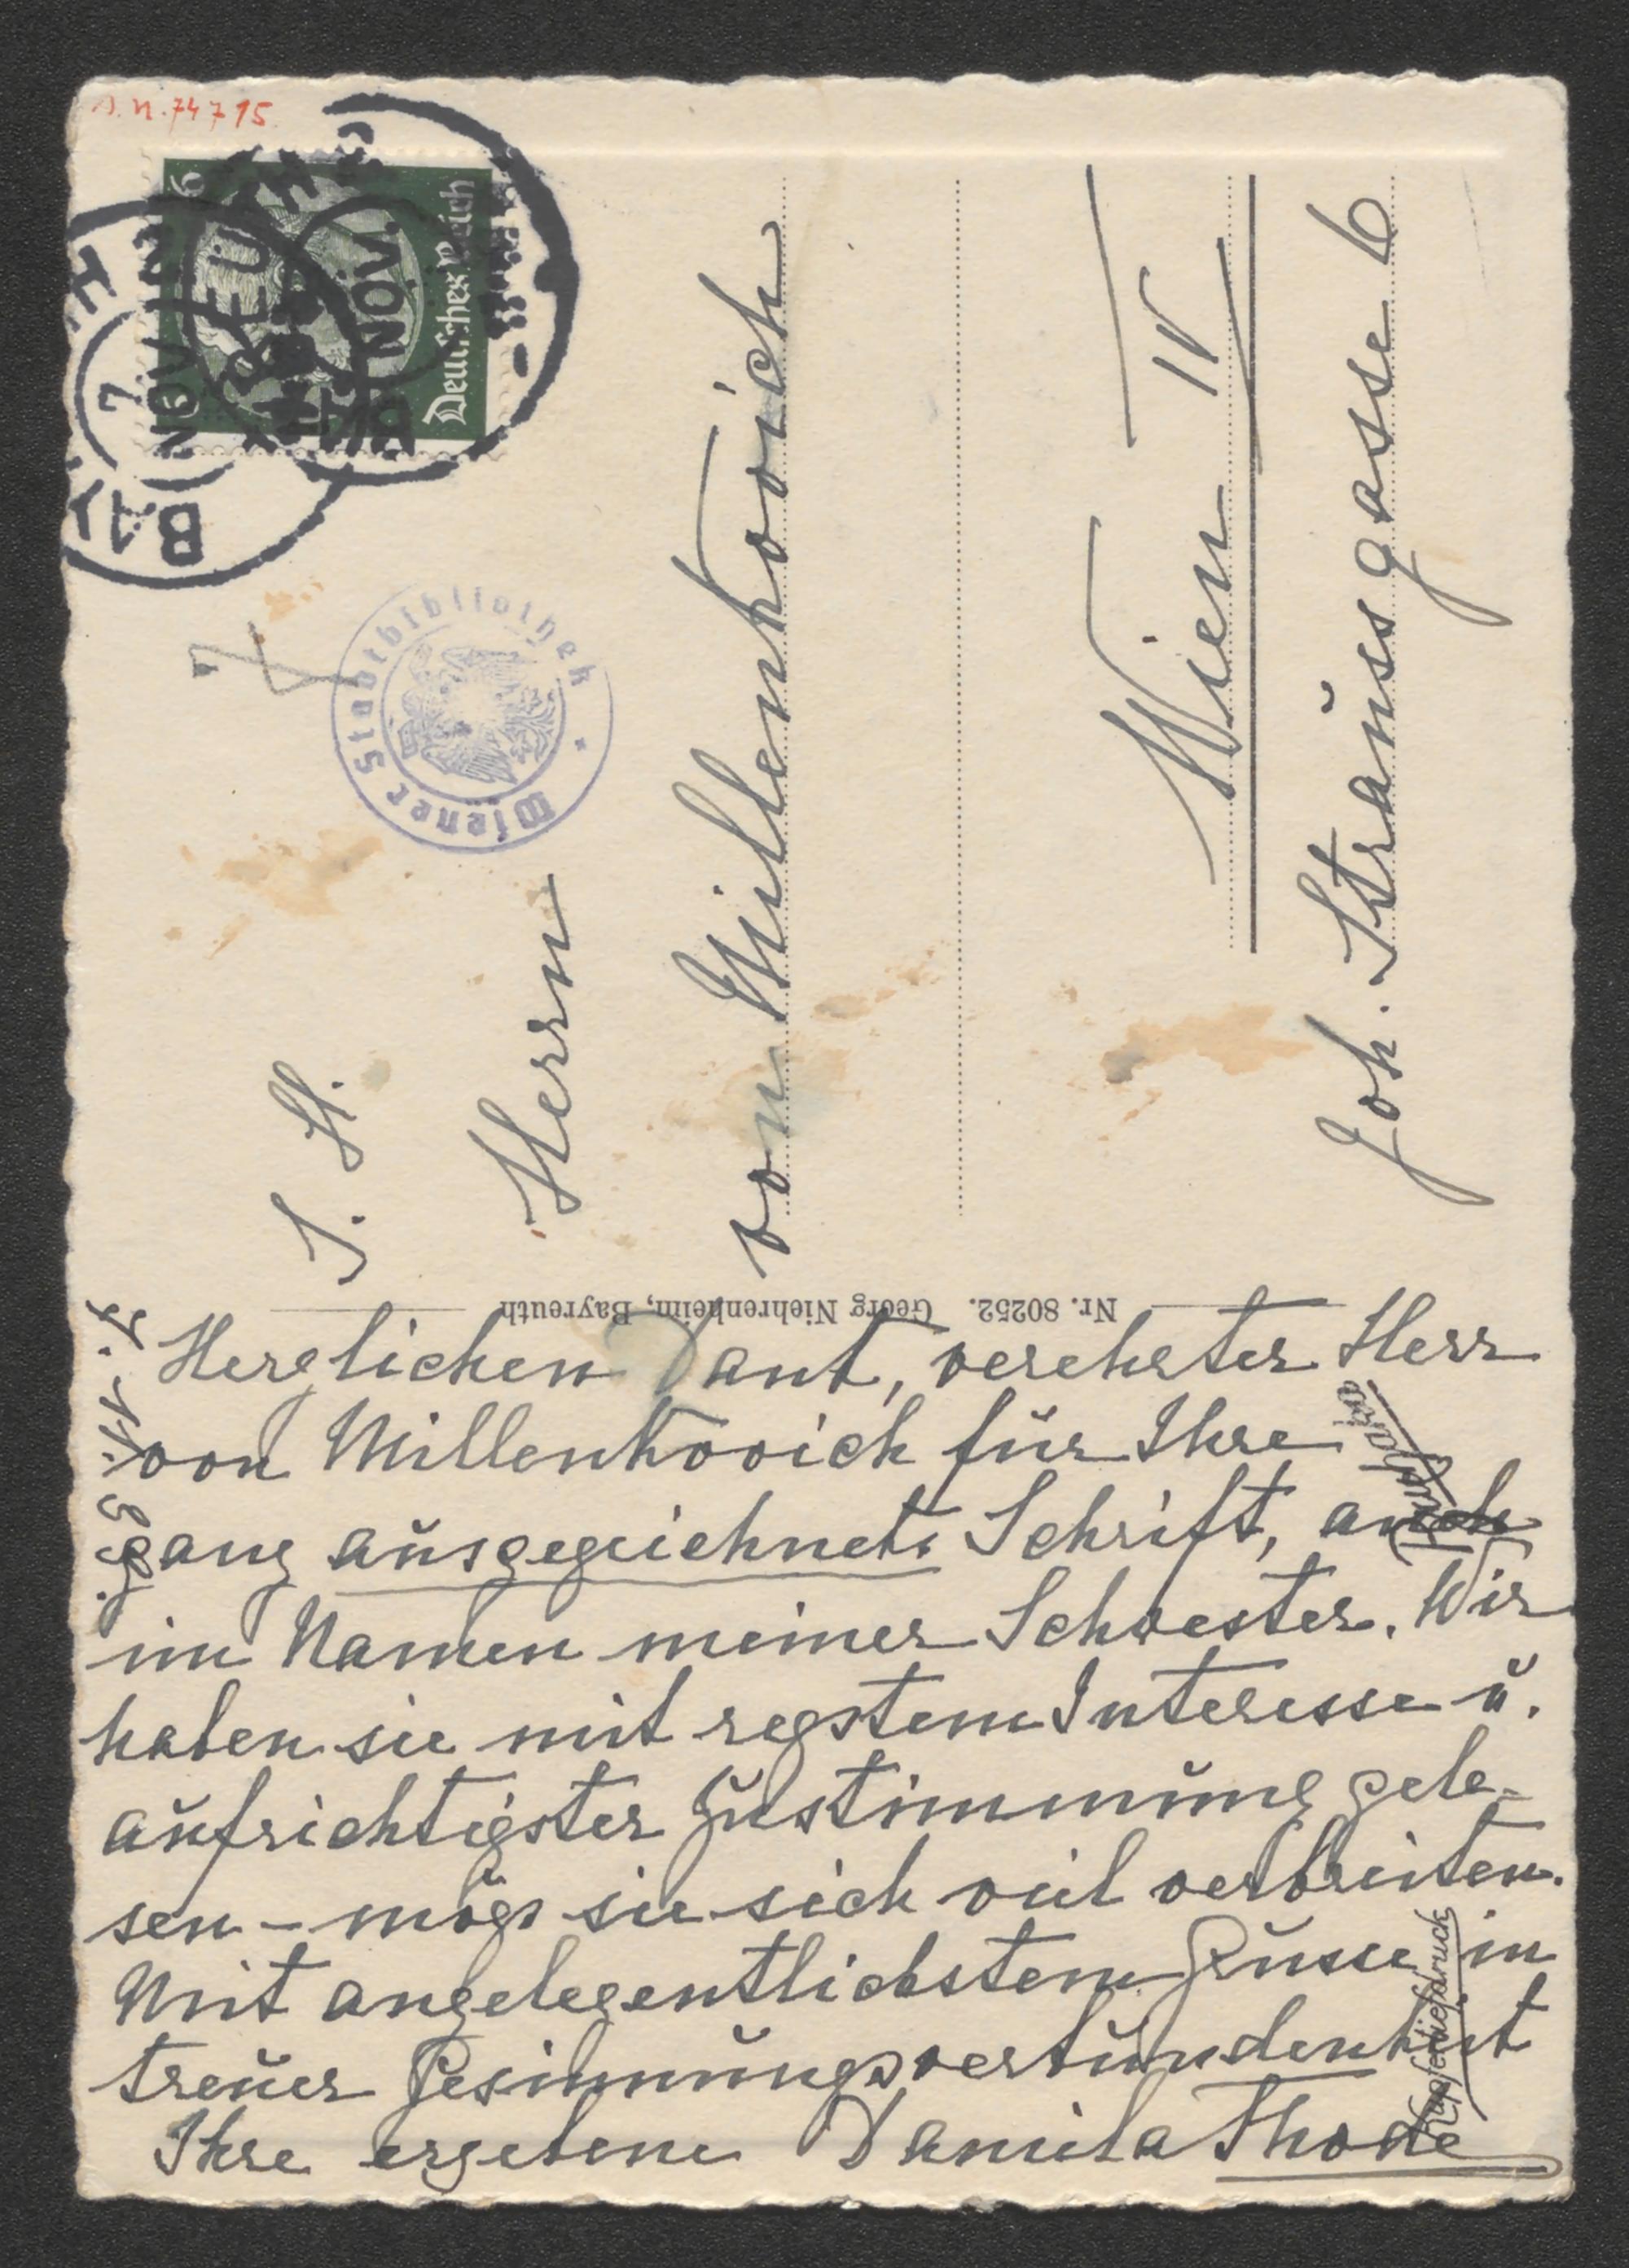 I. N. 74715
6
6
Deutsches Reich
BAYREUTH
NOV.
BAY
7
NOV
Wiener Stadtbibliothek
S. H.
Herrn
von Millenkovich
Wien IV
Joh. Straussgasse 6
Nr. 80252. Georg Niehrenheim, Bayreuth
7. 11. 38.
Herzlichen Dank, verehrter Herr
von Millenkovich für Ihre
ganz ausgezeichnete Schrift, auch
im Namen meiner Schwester. Wir
haben sie mit regstem Interesse u.
aufrichtigster Zustimmung gele-
sen – möge sie sich viel verbreiten.
Mit angelegentlichstem Grusse in
treuer Gesinnungsverbundenheit
Ihre ergebene Daniela Thode
Kupfertiefdruck